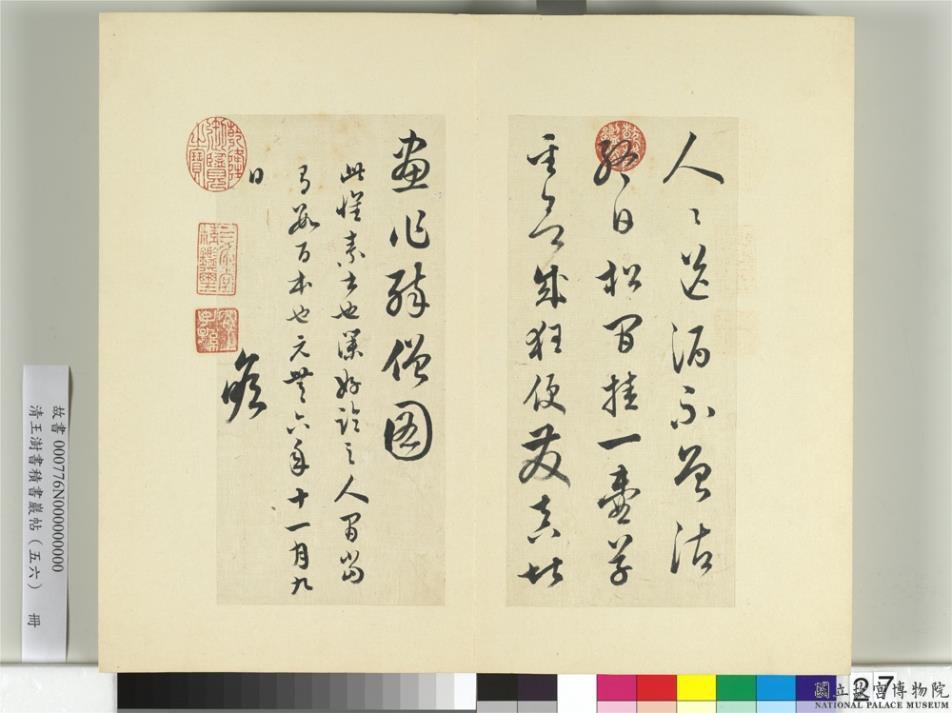 人〻送酒不曾沽
終日松間挂一壺草
聖欲成狂便發真堪
畫作醉僧圖
此懷素書也深好詠之人間當
有數百本也元豐六年十一月九
日
瞻
乾隆御覽之寶
三希堂精鑑璽
宜子孫
故書 000776N000000000
清王澍書積書巖帖(五六) 冊
27
國立故宮博物院
NATIONAL PALACE MUSEUM